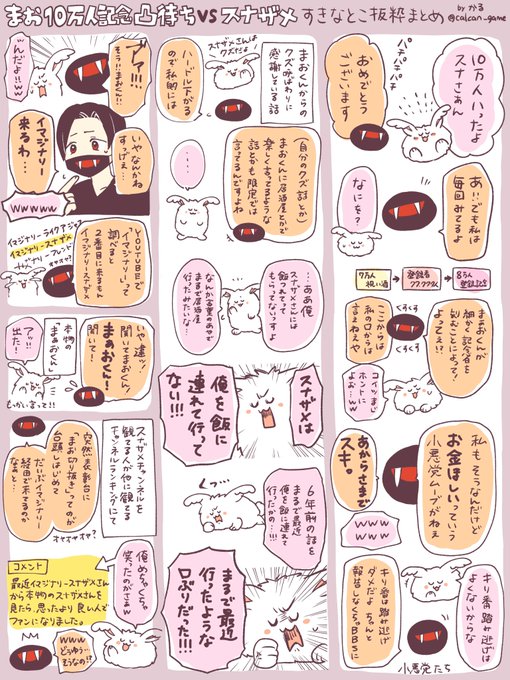 まお10万人記念凸待ちVSスナザメ すきなとこ抜粋まとめ
by かる
@calcan_game
10万人入ったよ
スナさぁん
パチパチパチ
おめでとう
ございます
あ!!でも私は
毎回みてるよ
なにを?
7万人
祝い酒
登録者
77,777人
8万人
登録記念
まぁおくんが
細かく記念日を
刻むことによって!
よってぇ!?
くすくす
くすくす
ここからは
私の口からは
言えねえや
コイツまじ
ホントに
よぉ…w
私もそうなんだけど
お金ほしいっていう
小悪党ムーブがねぇ
あからさまで
スキ。
www
キリ番は踏み逃げは
よくないからな
キリ番踏み逃げは
ダメだよ ちゃんと
報告しなくちゃBBSに
小悪党たち
まおくんからの
クズ呼ばわりに
感謝している話
スナザメさんは
クズだよ!
ハードル下がる
ので私的には
(自分のクズ話とか)
まおくんに居酒屋とかで
楽しく言ってるような
話とかも限定では
言ってるんですよね
・・・
…ああ俺
スナザメさんには
飯つれてって
もらってないっすよ
なんか言葉のあやで
まるで居酒屋
行ったみたいな!
スナザメは
俺を飯に
連れて行って
ない!!!
くっ…
6年前の話を
まるで最近
俺を飯に連れて
行ったかの…!!!
まるで最近
行ったような
口ぶりだった!!!
ブァ!!!
そう!!まおくん!!
んだよ!!w
いやなんかね
すっげぇ…
イマジナリー
来るわ…
wwww
YOUTUBEで
「イマジナリー」って
調べると
2番目に来るもん
イマジナリースナザメ
イマジナリーライクアジャ
イマジナリースナザメ
イマジナリーフレンド
いや違ッ!
聞いてまおくん!
聞いて!
まぁおくん!
本物の
「まぁおくん」
アッ…!!
出た!
もっかい言って!!
スナザメチャンネルを
観てる人が他に観てる
チャンネルランキングにて
突然表彰台に
「まお切り抜き」ってのが
台頭しはじめて
だいぶイマジナリー
経由で来てるのか
なぁと…
オャオャオャ?
俺めちゃくちゃ
笑ったのがさぁw
コメント
最近イマジナリースナザメさん
から本物のスナザメさんを
見たら思ったより良い人で
ファンになりました。
www
どうゆう…
そうなの!?